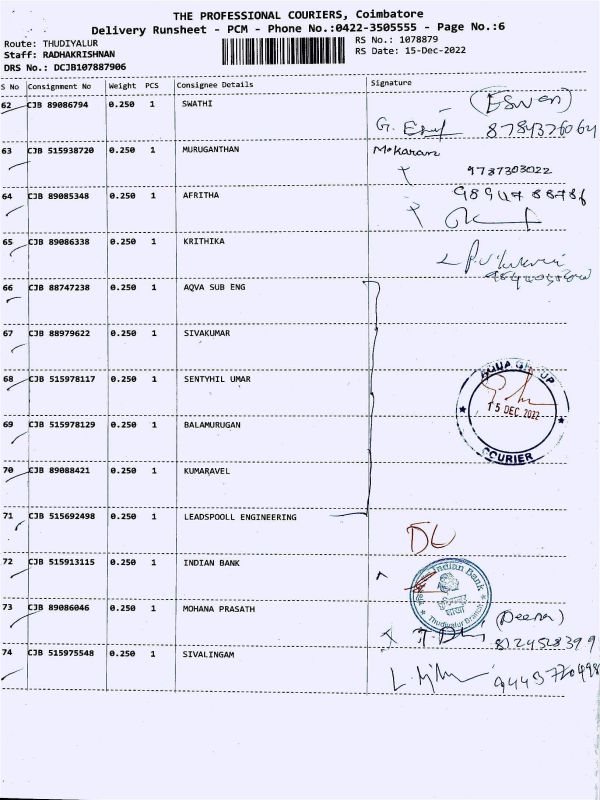 THE PROFESSIONAL COURIERS, Coimbatore
Delivery Runsheet - PCM - Phone No.:0422-3505555 - Page No.:6
Route: THUDIYALUR
RS No.: 1078879
Staff: RADHAKRISHNAN
RS Date: 15-Dec-2022
DRS No.: DCJB107887906
S No Consignment No Weight PCS Consignee Details Signature
62 CJB 89086794 0.250 1 SWATHI (ESwari)
G. 8784376064
63 CJB 515938720 0.250 1 MURUGANTHAN Mokaran
9787303022
64 CJB 89085348 0.250 1 AFRITHA 9894788786
65 CJB 89086338 0.250 1 KRITHIKA
66 CJB 88747238 0.250 1 AQVA SUB ENG
67 CJB 88979622 0.250 1 SIVAKUMAR
68 CJB 515978117 0.250 1 SENTYHIL UMAR
AQUA GROUP
15 DEC 2022
COURIER
69 CJB 515978129 0.250 1 BALAMURUGAN
70 CJB 89088421 0.250 1 KUMARAVEL
71 CJB 515692498 0.250 1 LEADSPOOLL ENGINEERING
72 CJB 515913115 0.250 1 INDIAN BANK
Indian Bank
Thudiyalur Branch
73 CJB 89086046 0.250 1 MOHANA PRASATH (Deena)
8124528399
74 CJB 515975548 0.250 1 SIVALINGAM